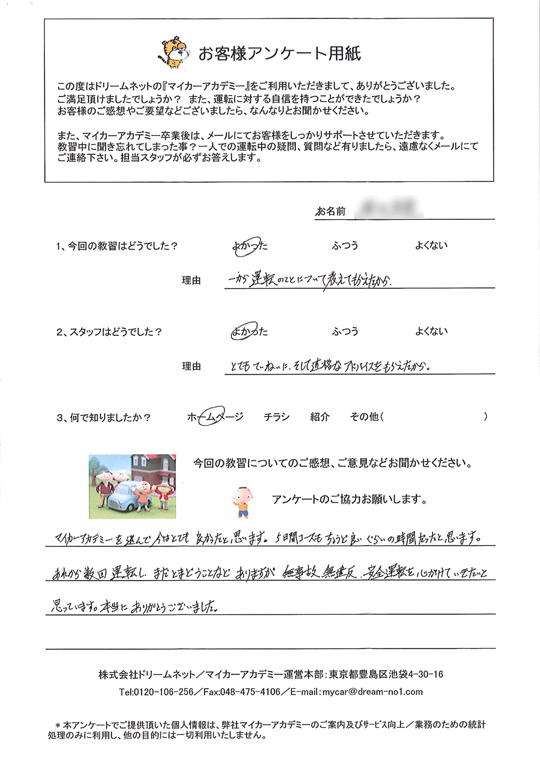 お客様アンケート用紙
この度はドリームネットの『マイカーアカデミー』をご利用いただきまして、ありがとうございました。
ご満足頂けましたでしょうか? また、運転に対する自信を持つことができたでしょうか?
お客様のご感想やご要望などございましたら、なんなりとお聞かせください。
また、マイカーアカデミー卒業後は、メールにてお客様をしっかりサポートさせていただきます。
教習中に聞き忘れてしまった事?一人での運転中の疑問、質問など有りましたら、遠慮なくメールにて
ご連絡下さい。担当スタッフが必ずお答えします。
お名前
1、今回の教習はどうでした? よかった ふつう よくない
理由 一から運転のことについて教えてもらえたから。
2、スタッフはどうでした? よかった ふつう よくない
理由 とてもていねいに、そして適格なアドバイスをもらえたから。
3、何で知りましたか? ホームページ チラシ 紹介 その他( )
今回の教習についてのご感想、ご意見などお聞かせください。
アンケートのご協力お願いします。
マイカーアカデミーを選んで今はとても良かったと思います。5日間コースもちょうど良いぐらいの時間だったと思います。
あれから数回運転し、まだとまどうことなどありますが 無事故、無違反、安全運転を心がけていきたいと
思っています。本当にありがとうございました。
株式会社ドリームネット/マイカーアカデミー運営本部:東京都豊島区池袋4-30-16
Tel:0120-106-256/Fax:048-475-4106/E-mail:mycar@dream-no1.com
*本アンケートでご提供頂いた個人情報は、弊社マイカーアカデミーのご案内及びサービス向上/業務のための統計
処理のみに利用し、他の目的には一切利用いたしません。